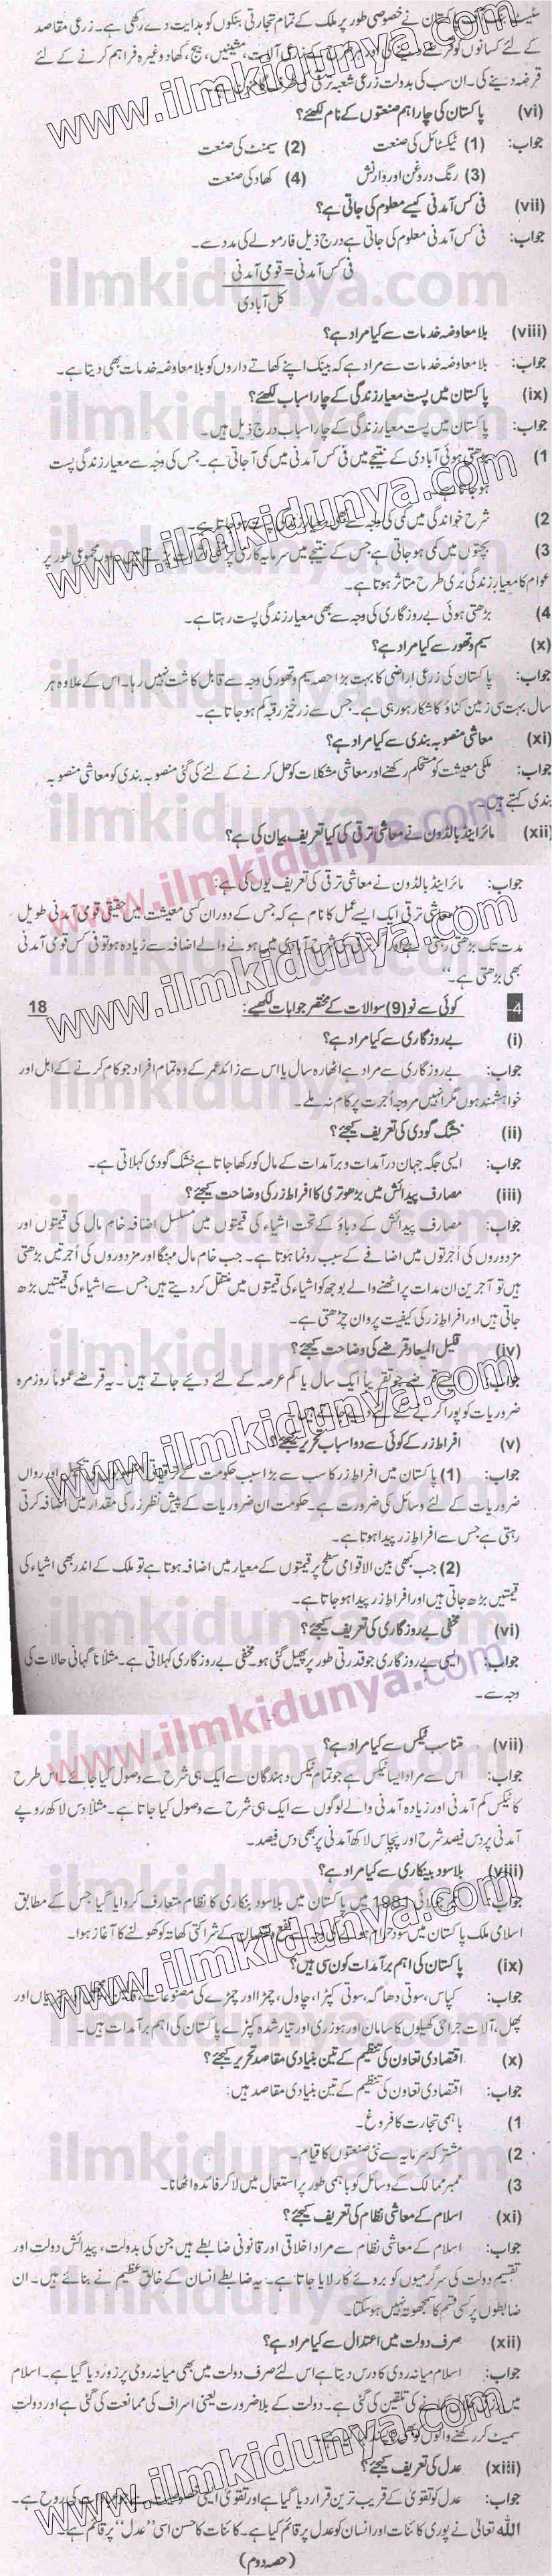 سٹیٹ بینک پاکستان نے خصوصی طور پر ملک کے تمام تجارتی بنکوں کو ہدایت دے رکھی ہے۔ زرعی مقاصد
کے لئے کسانوں کو قرضے آلات، مشینیں، بیج، کھاد وغیرہ فراہم کرنے کے لئے
قرضہ دینے کی۔ ان سب کی بدولت زرعی شعبہ ترقی
(vi) پاکستان کی چار اہم صنعتوں کے نام لکھئے؟
جواب: (1) ٹیکسٹائل کی صنعت (2) سیمنٹ کی صنعت
(3) رنگ و روغن اور وارنش (4) کھاد کی صنعت
(vii) فی کس آمدنی کیسے معلوم کی جاتی ہے؟
جواب: فی کس آمدنی معلوم کی جاتی ہے درج ذیل فارمولے کی مدد سے۔
فی کس آمدنی = قومی آمدنی
کل آبادی
(viii) بلا معاوضہ خدمات سے کیا مراد ہے؟
جواب: بلا معاوضہ خدمات سے مراد ہے کہ بینک اپنے کھاتے داروں کو بلا معاوضہ خدمات بھی دیتا ہے۔
(ix) پاکستان میں پست معیار زندگی کے چار اسباب لکھئے؟
جواب: پاکستان میں پست معیار زندگی کے چار اسباب درج ذیل ہیں۔
(1 بڑھتی ہوئی آبادی کے نتیجے میں فی کس آمدنی میں کمی آ جاتی ہے۔ جس کی وجہ سے معیار زندگی پست
ہو جاتا ہے۔
(2 شرح خواندگی میں کمی کی وجہ سے معیار زندگی ہو جاتا ہے۔
(3 بچتوں میں کمی ہو جاتی ہے جس کے نتیجے میں سرمایہ کاری پر منفی اثرات اور مجموعی طور پر
عوام کا معیار زندگی بری طرح متاثر ہوتا ہے۔
(4 بڑھتی ہوئی بے روزگاری کی وجہ سے بھی معیار زندگی پست رہتا ہے۔
(x) سیم و تھور سے کیا مراد ہے؟
جواب: پاکستان کی زرعی اراضی کا بہت بڑا حصہ سیم و تھور کی وجہ سے قابل کاشت نہیں رہا۔ اس کے علاوہ ہر
سال بہت سی زمین کٹاؤ کا شکار ہو رہی ہے۔ جس سے زرخیز رقبہ کم ہو جاتا ہے۔
(xi) معاشی منصوبہ بندی سے کیا مراد ہے؟
جواب: ملکی معیشت کو مستحکم رکھنے اور معاشی مشکلات کو حل کرنے کے لئے کی گئی منصوبہ بندی کو معاشی منصوبہ
بندی کہتے ہیں۔
(xii) مائر اینڈ بالڈون نے معاشی ترقی کی کیا تعریف بیان کی ہے؟
جواب: مائر اینڈ بالڈون نے معاشی ترقی کی تعریف یوں کی ہے:
معاشی ترقی ایک ایسے عمل کا نام ہے کہ جس کے دوران کسی معیشت میں حقیقی قومی آمدنی طویل
مدت تک بڑھتی رہتی ہے اور شرح آبادی میں ہونے والے اضافہ سے زیادہ ہو تو فی کس قومی آمدنی
بھی بڑھتی ہے۔"
4- کوئی سے نو (9) سوالات کے مختصر جوابات لکھیے: 18
(i) بے روزگاری سے کیا مراد ہے؟
جواب: بے روزگاری سے مراد ہے اٹھارہ سال یا اس سے زائد عمر کے وہ تمام افراد جو کام کرنے کے اہل اور
خواہشمند ہوں مگر انہیں مروجہ اجرت پر کام نہ ملے۔
(ii) خشک گودی کی تعریف کیجئے؟
جواب: ایسی جگہ جہاں درآمدات و برآمدات کے مال کو رکھا جاتا ہے خشک گودی کہلاتی ہے۔
(iii) مصارف پیدائش میں بڑھوتری کا افراط زر کی وضاحت کیجئے؟
جواب: مصارف پیدائش کے دباؤ کے تحت اشیاء کی قیمتوں میں مسلسل اضافہ خام مال کی قیمتوں اور
مزدوروں کی اجرتوں میں اضافے کے سبب رونما ہوتا ہے۔ جب خام مال مہنگا اور مزدوروں کی اجرتیں بڑھتی
ہیں تو آجرین ان مدات پر اٹھنے والے بوجھ کو اشیاء کی قیمتوں میں منتقل کر دیتے ہیں جس سے اشیاء کی قیمتیں بڑھ
جاتی ہیں اور افراط زر کی کیفیت پروان چڑھتی ہے۔
(iv) قلیل المیعاد قرضے کی وضاحت کیجئے؟
جواب: قرضے جو تقریباً ایک سال یا کم عرصہ کے لئے دیئے جاتے ہیں۔ یہ قرضے عموماً روزمرہ
ضروریات کو پورا کرنے کے لئے
(v) افراط زر کے کوئی سے دو اسباب تحریر کیجئے؟
جواب: (1) پاکستان میں افراط زر کا سب سے بڑا سبب حکومت کے ترقیاتی کی تکمیل اور رواں
ضروریات کے لئے وسائل کی ضرورت ہے۔ حکومت ان ضروریات کے پیش نظر زر کی مقدار میں اضافہ کرتی
رہتی ہے جس سے افراط زر پیدا ہوتا ہے۔
(2) جب کبھی بین الاقوامی سطح پر قیمتوں کے معیار میں اضافہ ہوتا ہے تو ملک کے اندر بھی اشیاء کی
قیمتیں بڑھ جاتی ہیں اور افراط زر پیدا ہو جاتا ہے۔
(vi) مخفی بے روزگاری کی تعریف کیجئے؟
جواب: ایسی بے روزگاری جو قدرتی طور پر پھیل گئی ہو۔ مخفی بے روزگاری کہلاتی ہے۔ مثلاً ناگہانی حالات کی
وجہ سے۔
(vii) متناسب ٹیکس سے کیا مراد ہے؟
جواب: اس سے مراد ایسا ٹیکس ہے جو تمام ٹیکس دہندگان سے ایک ہی شرح سے وصول کیا جائے۔ اس طرح
کا ٹیکس کم آمدنی اور زیادہ آمدنی والے لوگوں سے ایک ہی شرح سے وصول کیا جاتا ہے۔ مثلاً دس لاکھ روپے
آمدنی پر دس فیصد شرح اور پچاس لاکھ آمدنی پر بھی دس فیصد۔
(viii) بلا سود بینکاری سے کیا مراد ہے؟
جواب: 1981 میں پاکستان میں بلا سود بنکاری کا نظام متعارف کروایا گیا جس کے مطابق
اسلامی ملک پاکستان میں سود حرام نفع و نقصان کے شراکتی کھاتہ کو کھولنے کا آغاز ہوا۔
(ix) پاکستان کی اہم برآمدات کون سی ہیں؟
جواب: کپاس، سوتی دھاگہ، سوتی کپڑا، چاول، چمڑا اور چمڑے کی مصنوعات، قالین اور
پھل، آلات جراحی کھیلوں کا سامان اور ہوزری اور تیار شدہ کپڑے پاکستان کی اہم برآمدات ہیں۔
(x) اقتصادی تعاون کی تنظیم کے تین بنیادی مقاصد تحریر کیجئے؟
جواب: اقتصادی تعاون کی تنظیم کے تین بنیادی مقاصد ہیں:
(1 باہمی تجارت کا فروغ۔
(2 مشترکہ سرمایہ سے نئی صنعتوں کا قیام۔
(3 ممبر ممالک کے وسائل کو باہمی طور پر استعمال میں لا کر فائدہ اٹھانا۔
(xi) اسلام کے معاشی نظام کی تعریف کیجئے؟
جواب: اسلام کے معاشی نظام سے مراد اخلاقی اور قانونی ضابطے ہیں جن کی بدولت، پیدائش دولت اور
تقسیم دولت کی سرگرمیوں کو بروئے کار لایا جاتا ہے۔ یہ ضابطے انسان کے خالق عظیم نے بنائے ہیں۔ ان
ضابطوں پر کسی قسم کا سمجھوتہ نہیں ہو سکتا۔
(xii) صرف دولت میں اعتدال سے کیا مراد ہے؟
جواب: اسلام میانہ روی کا درس دیتا ہے اس لئے صرف دولت میں بھی میانہ روی پر زور دیا گیا ہے۔ اسلام
میں کی تلقین کی گئی ہے۔ دولت کے بلا ضرورت یعنی اسراف کی ممانعت کی گئی ہے اور دولت
سمیٹ کر رکھنے والوں کو بھی
(xiii) عدل کی تعریف کیجئے؟
جواب: عدل کو تقویٰ کے قریب ترین قرار دیا گیا ہے اور تقویٰ ایسی کی روح ہے۔
اللہ تعالیٰ نے پوری کائنات اور انسان کو عدل پر قائم کیا ہے۔ کائنات کا حسن اسی "عدل" پر قائم ہے۔
(حصہ دوم)
www.ilmkidunya.com